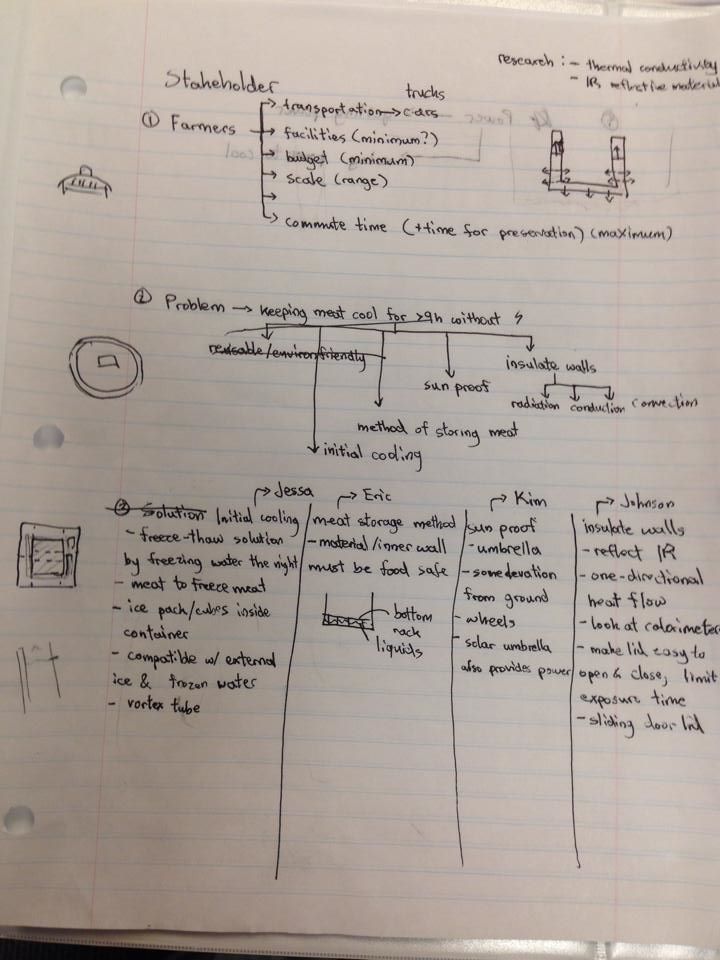 research : - thermal conductivity
- IR reflective material
Stakeholder
trucks
① Farmers
transportation → cars
facilities (minimum?)
budget (minimum)
scale (range)
commute time (+time for preservation) (maximum)
② Problem → keeping meat cool for >9h without
reusable/environ friendly
insulate walls
sun proof
radiation conduction convection
method of storing meat
initial cooling
→ Jessa
③ Solution Initial cooling
- freeze-thaw solution
by freezing water the night
- meat to freeze meat
- ice pack/cubes inside
container
- compatible w/ external
ice & frozen water
- vortex tube
→ Eric
meat storage method
- material/inner wall
must be food safe
bottom
rack
liquids
→ Kim
sun proof
- umbrella
- some elevation
from ground
- wheels
- solar umbrella
also provides power
→ Johnson
insulate walls
- reflect IR
- one-directional
heat flow
- look at calorimeter
- make lid easy to
open & close, limit
exposure time
- sliding door lid